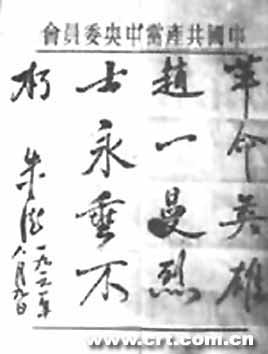 中國共產黨中央委員會
革命英雄
趙一曼烈
士永垂不
朽
朱德
一九六二年
八月九日
www.crt.com.cn